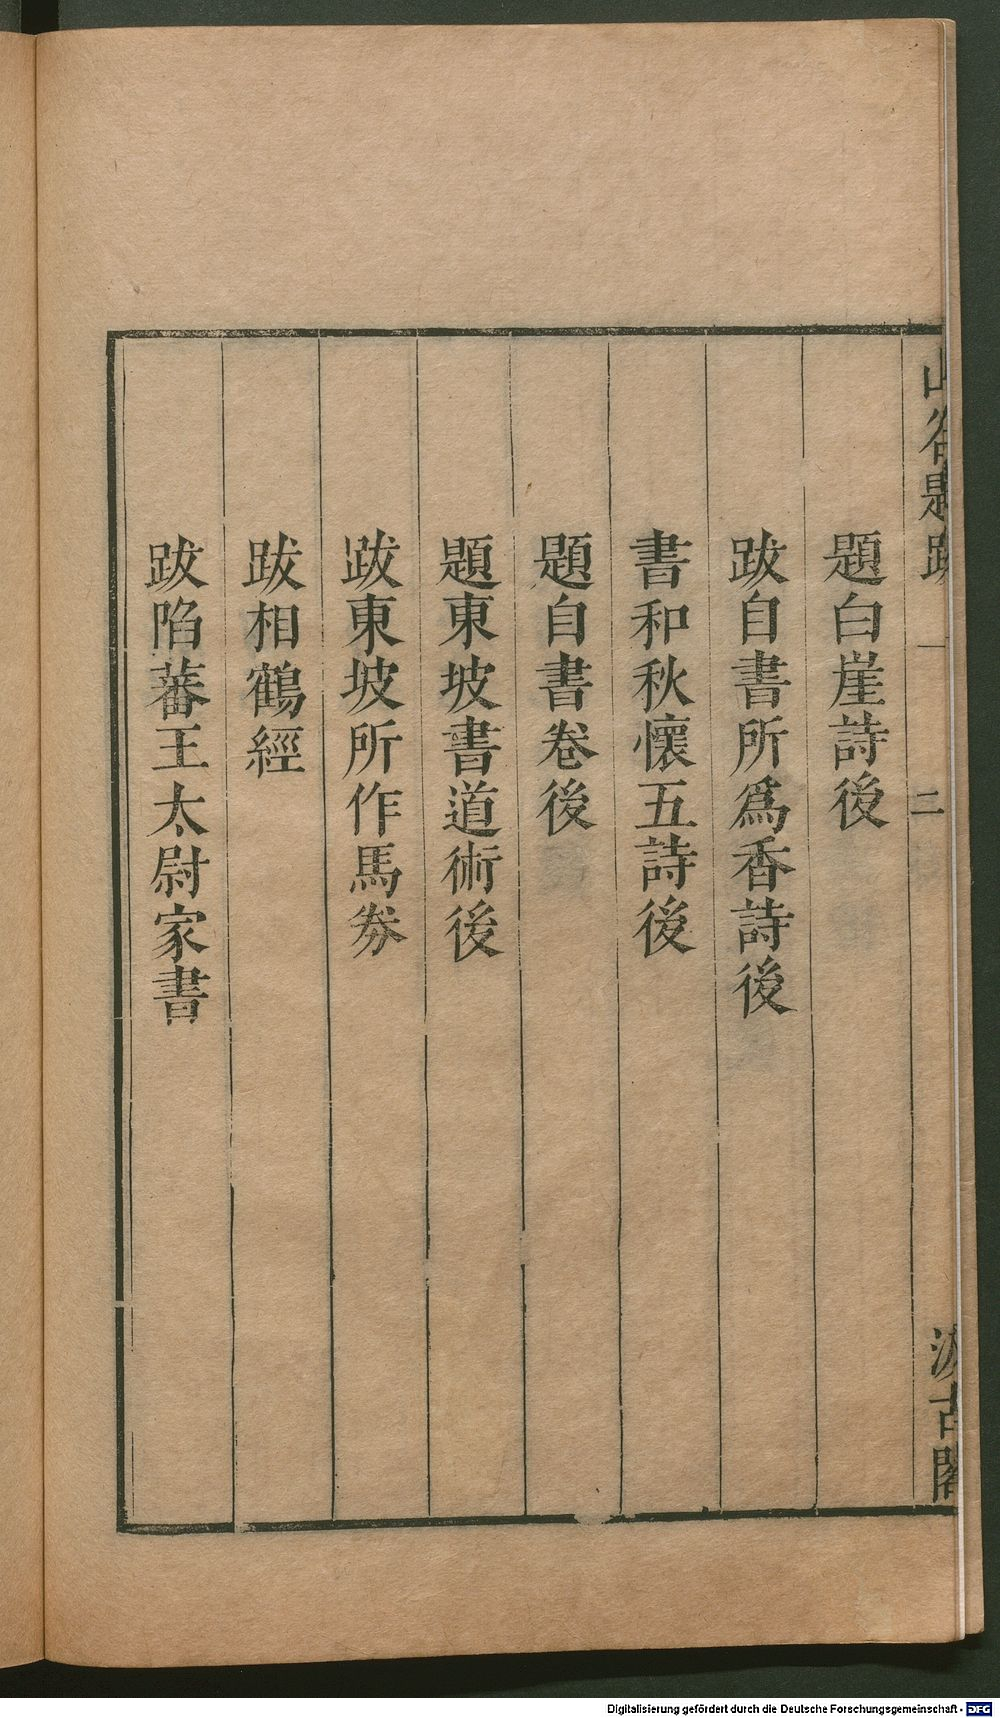 山谷題跋 一 二 汲古閣
題白崖詩後
跋自書所爲香詩後
書和秋懷五詩後
題自書卷後
題東坡書道術後
跋東坡所作馬券
跋相鶴經
跋陷蕃王太尉家書
Digitalisierung gefördert durch die Deutsche Forschungsgemeinschaft - DFG